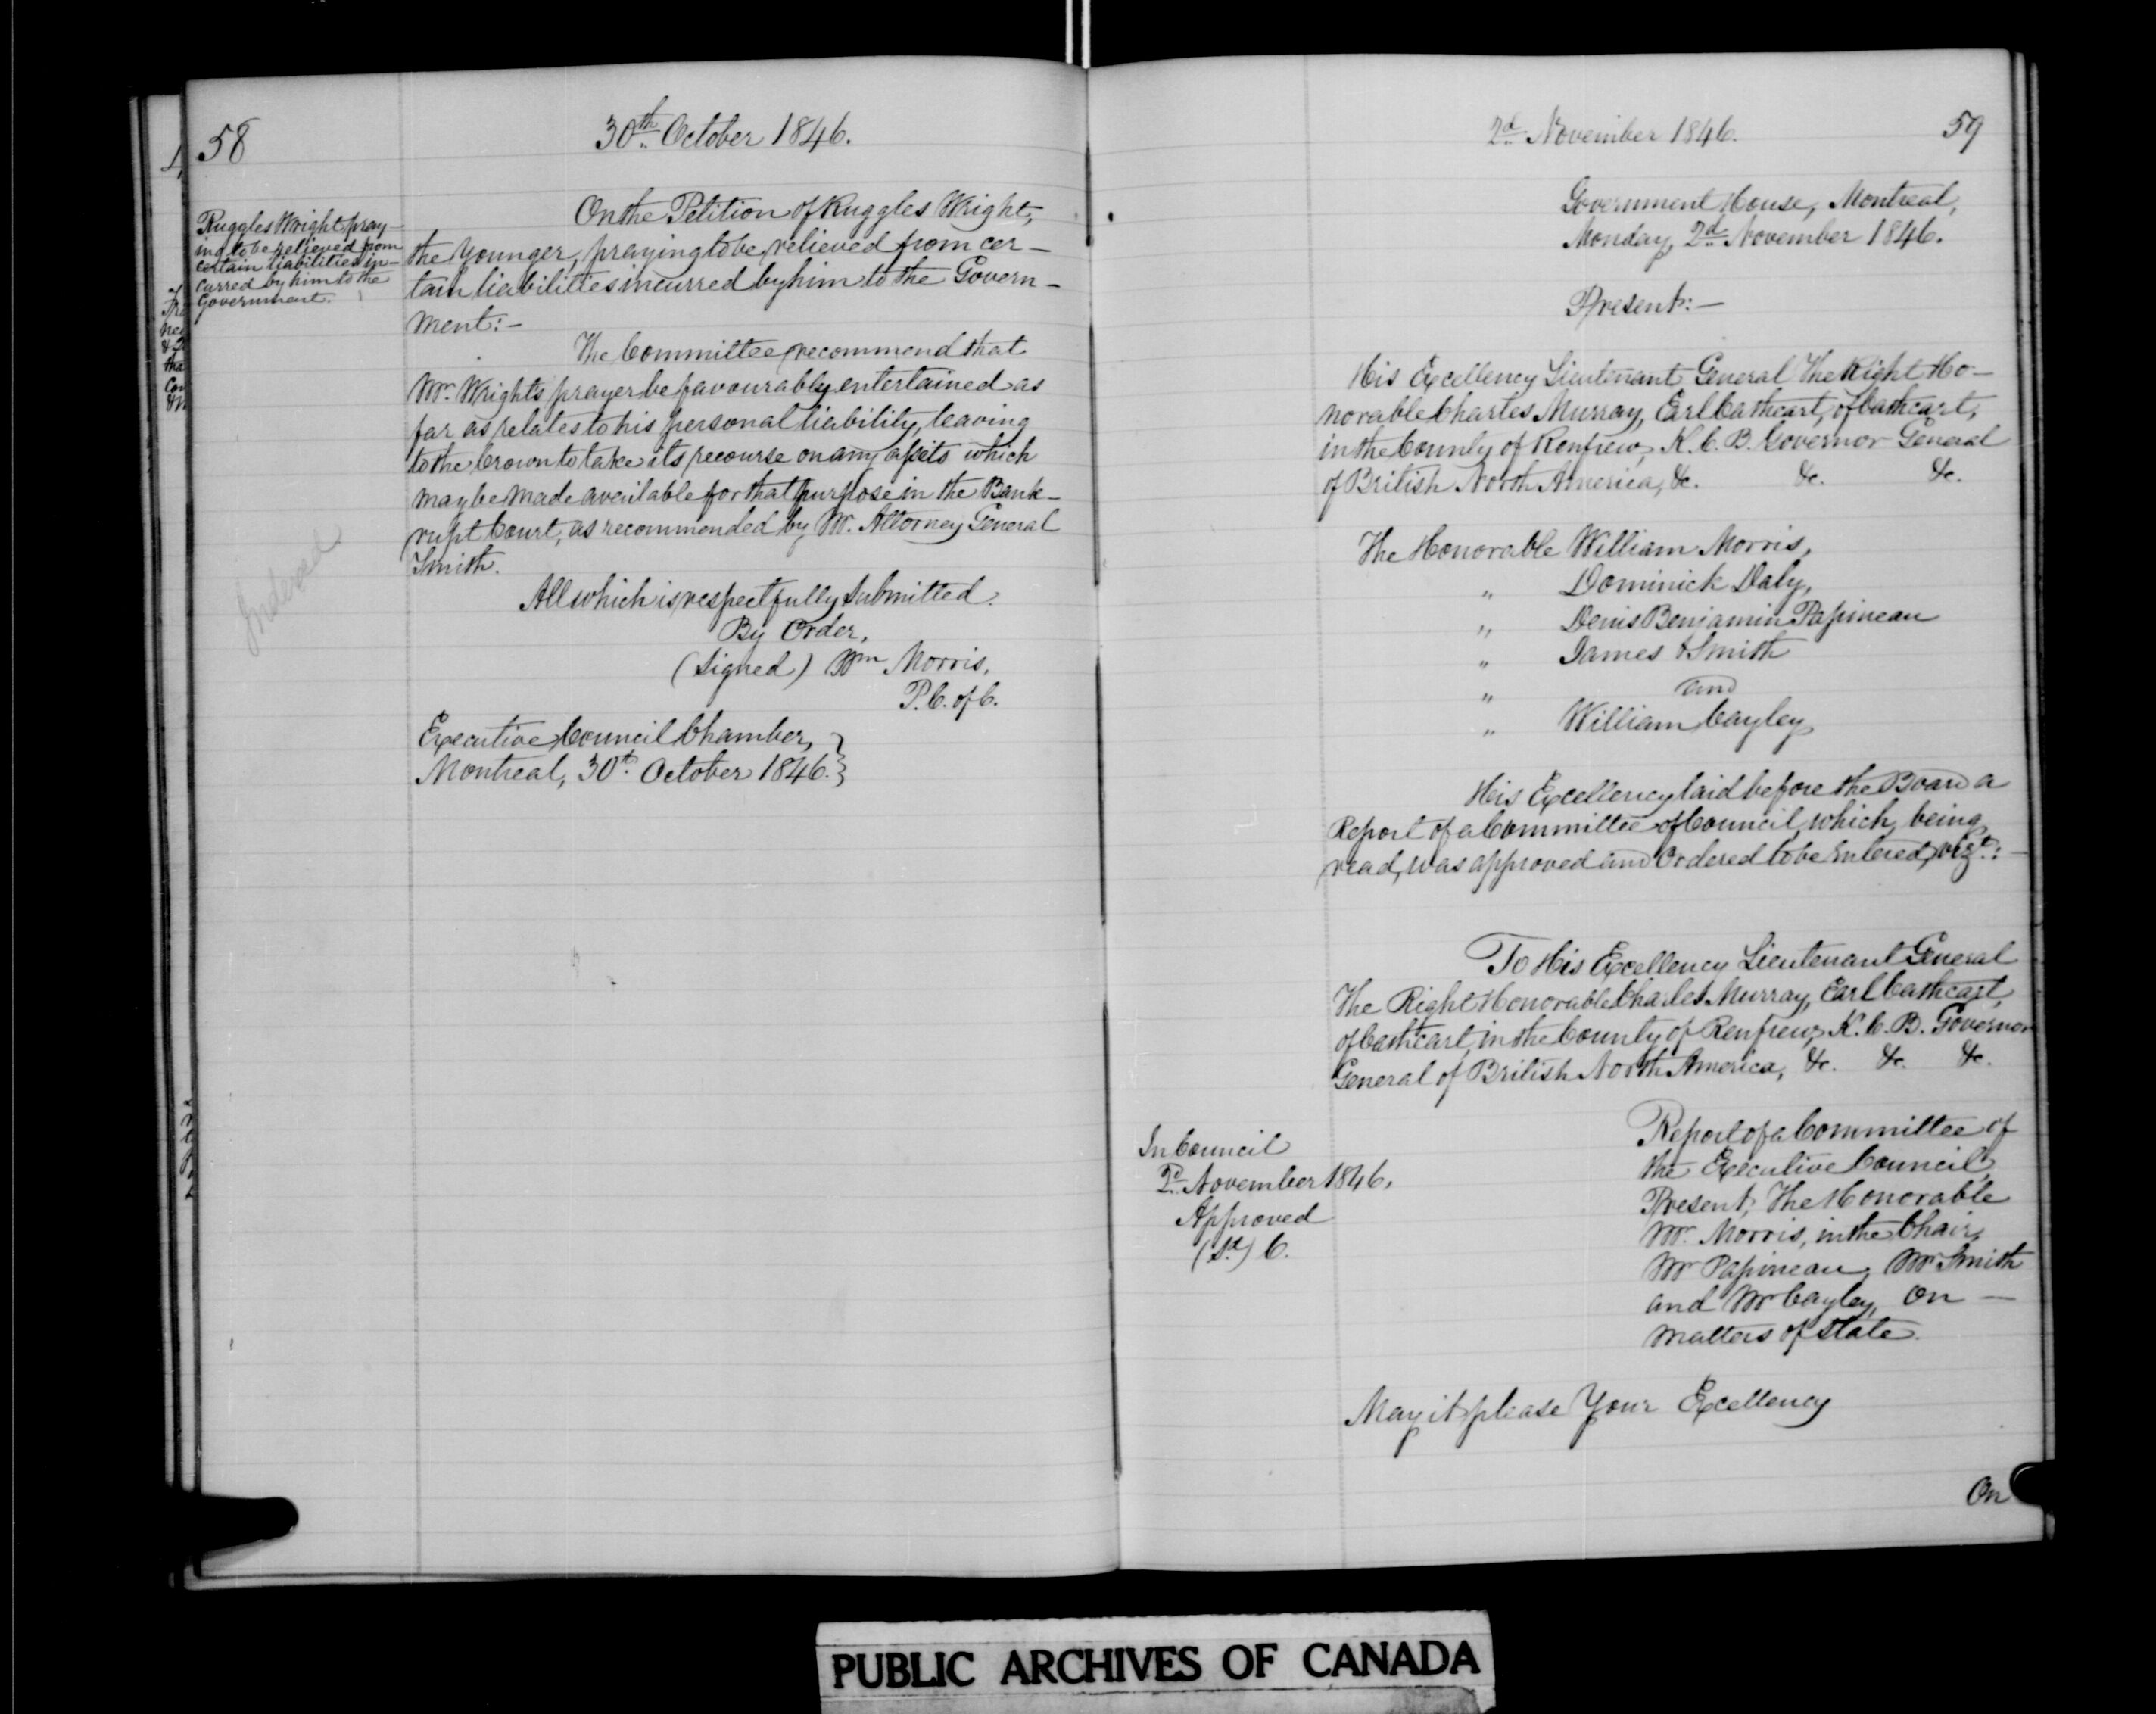 58
30th October 1846.
Ruggles Wright pray-
ing to be relieved from
certain liabilities in-
curred by him to the
Government.
On the Petition of Ruggles Wright,
the Younger, praying to be relieved from cer-
tain liabilities incurred by him to the Govern-
ment:-
The Committee recommend that
Mr. Wright's prayer be favourably entertained as
far as relates to his personal liability, leaving
to the Crown to take its recourse on any assets which
may be made available for that purpose in the Bank-
rupt Court, as recommended by Mr. Attorney General
Smith.
Indexed
All which is respectfully submitted.
By Order,
(Signed) Wm Morris,
P.C. of C.
Executive Council Chamber,
Montreal, 30th October 1846.
2d November 1846.
59
Government House, Montreal,
Monday, 2d November 1846.
Present:-
His Excellency Lieutenant General The Right Ho-
norable Charles Murray, Earl Cathcart, of Cathcart,
in the County of Renfrew, K.C.B. Governor General
of British North America, &c. &c. &c.
The Honorable William Morris,
" Dominick Daly,
" Denis Benjamin Papineau
" James Smith
" and
" William Cayley
His Excellency laid before the Board a
Report of a Committee of Council, which, being
read, was approved and Ordered to be Entered, vizt:-
To His Excellency Lieutenant General
The Right Honorable Charles Murray, Earl Cathcart,
of Cathcart, in the County of Renfrew, K.C.B. Governor
General of British North America, &c. &c. &c.
In Council
2d November 1846.
Approved
(Sd) C.
Report of a Committee of
the Executive Council,
Present, The Honorable
Mr. Morris, in the Chair,
Mr Papineau, Mr Smith
and Mr Cayley, On -
matters of state.
May it please Your Excellency
On
PUBLIC ARCHIVES OF CANADA